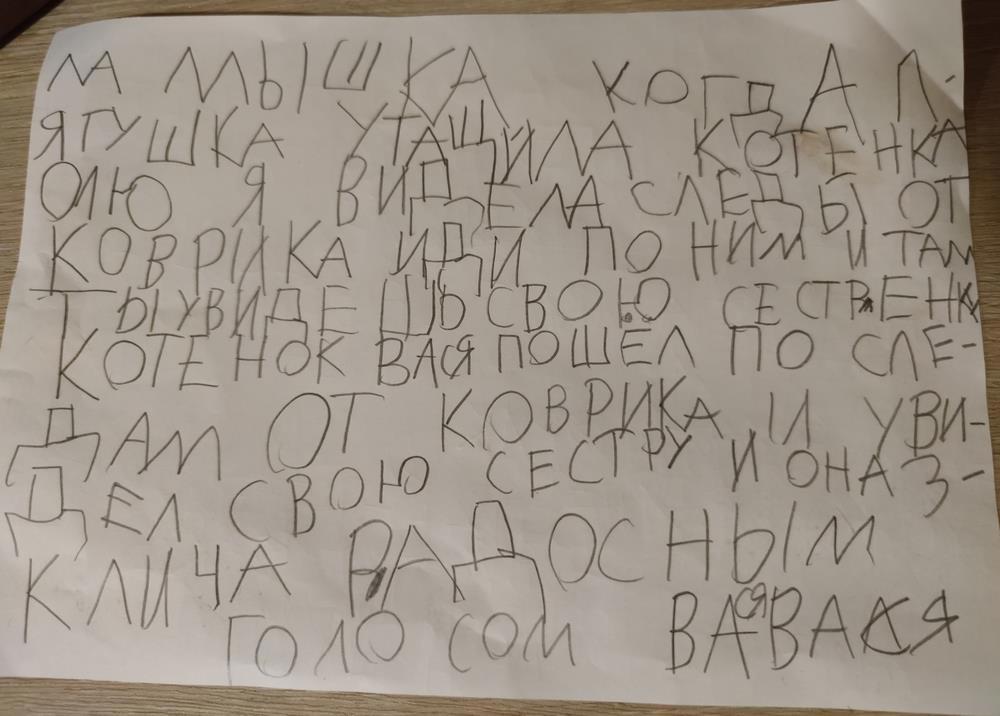 ЛА МЫШКА КОГДА Л-
ЯГУШКА УТАЩИЛА КОТЕНКА
ОЛЮ Я ВИДЕЛА СЛЕДЫ ОТ
КОВРИКА ИДИ ПО НИМ И ТАМ
ТЫ УВИДЕШЬ СВОЮ СЕСТРЕНКУ
КОТЕНОК ВАСЯ ПОШЕЛ ПО СЛЕ-
ДАМ ОТ КОВРИКА И УВИ-
ДЕЛ СВОЮ СЕСТРУ И ОНА З-
КЛИЧА РАДОСНЫМ
ГОЛОСОМ ВАСЯ ВАСЯ